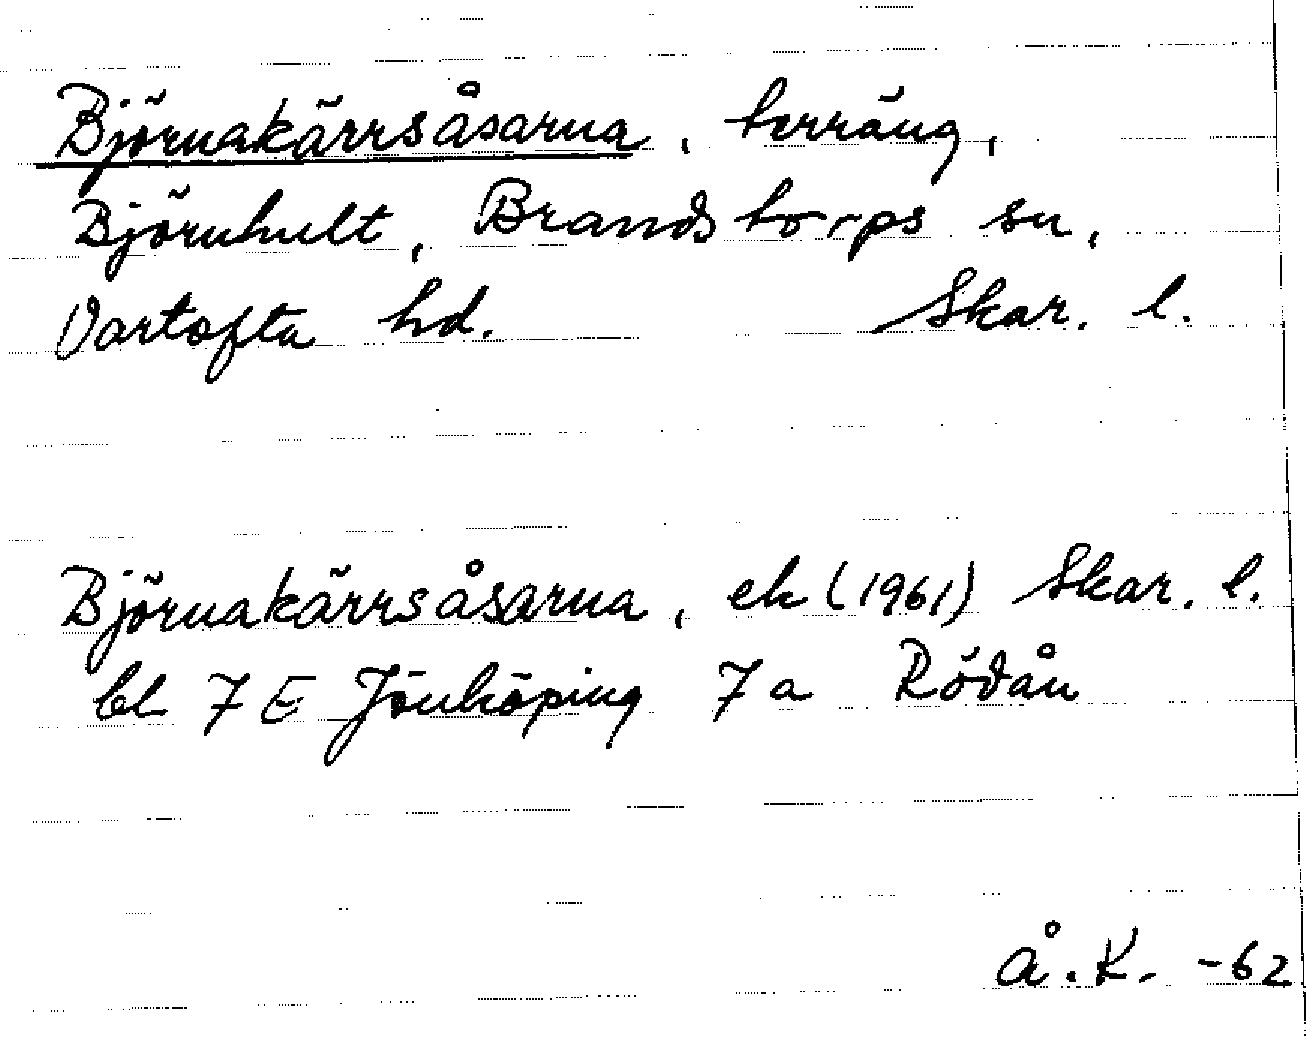 Björnakärrsåsarna, terräng,
Björnhult, Brandstorps sn,
Vartofta hd. Skar. l.
Björnakärrsåsarna, ek (1961) Skar. l.
bl 7E Jönköping 7a Rödån
Å.K. -62